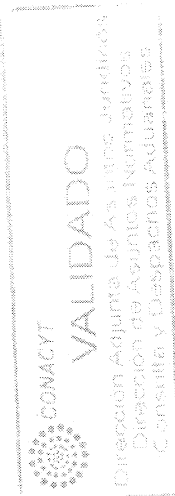 CONACYT
VALIDADO
Dirección Adjunta de Asuntos Jurídicos
Dirección de Asuntos Normativos
Consulta y Despachos Aduanales